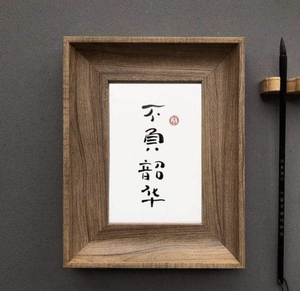 不負韶华